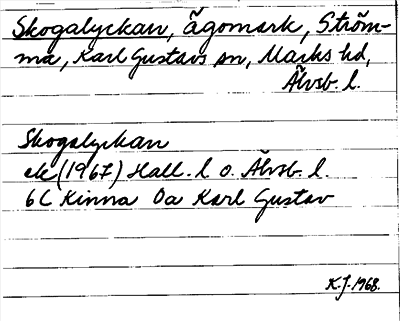 Skogalyckan, ägomark, Ström-
ma, Karl Gustavs sn, Marks hd,
Älvsb. l.
Skogalyckan
ek (1967) Hall. l o. Älvsb. l.
6C Kinna 0a Karl Gustav
K.J. 1968.